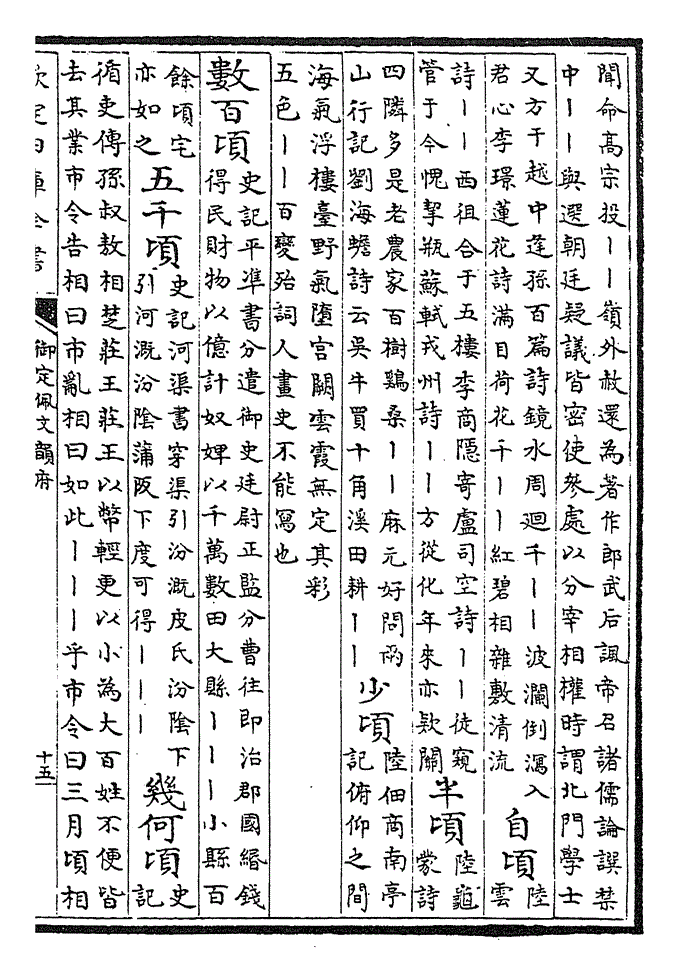 聞命高宗投丨丨嶺外赦還為著作郎武后諷帝召諸儒論譔禁
中丨丨與選朝廷疑議皆密使參處以分宰相權時謂北門學士
又方干越中逢孫百篇詩鏡水周迴千丨丨波瀾倒瀉入
君心李璟蓮花詩滿目荷花千丨丨紅碧相雜敷清流
自頃
陸
雲
詩丨丨西徂合于五樓李商隱寄盧司空詩丨丨徒窺
管于今愧挈瓶蘇軾戎州詩丨丨方從化年來亦款關
半頃
陸龜
蒙詩
四隣多是老農家百樹鷄桑丨丨麻元好問兩
山行記劉海蟾詩云吳牛買十角溪田耕丨丨
少頃
陸佃商南亭
記俯仰之間
海氣浮樓臺野氣墮宫闕雲霞無定其彩
五色丨丨百變殆詞人畫史不能冩也
數百頃
史記平準書分遣御史廷尉正監分曹往即治郡國緡錢
得民財物以億計奴婢以千萬數田大縣丨丨丨小縣百
餘頃宅
亦如之
五千頃
史記河渠書穿渠引汾溉皮氏汾陰下
引河溉汾陰蒲阪下度可得丨丨丨
幾何頃
史
記
循吏傳孫叔敖相楚莊王莊王以幣輕更以小為大百姓不便皆
去其業市令告相曰市亂相曰如此丨丨丨乎市令曰三月頃相
欽定四庫全書
御定佩文韻府
十五